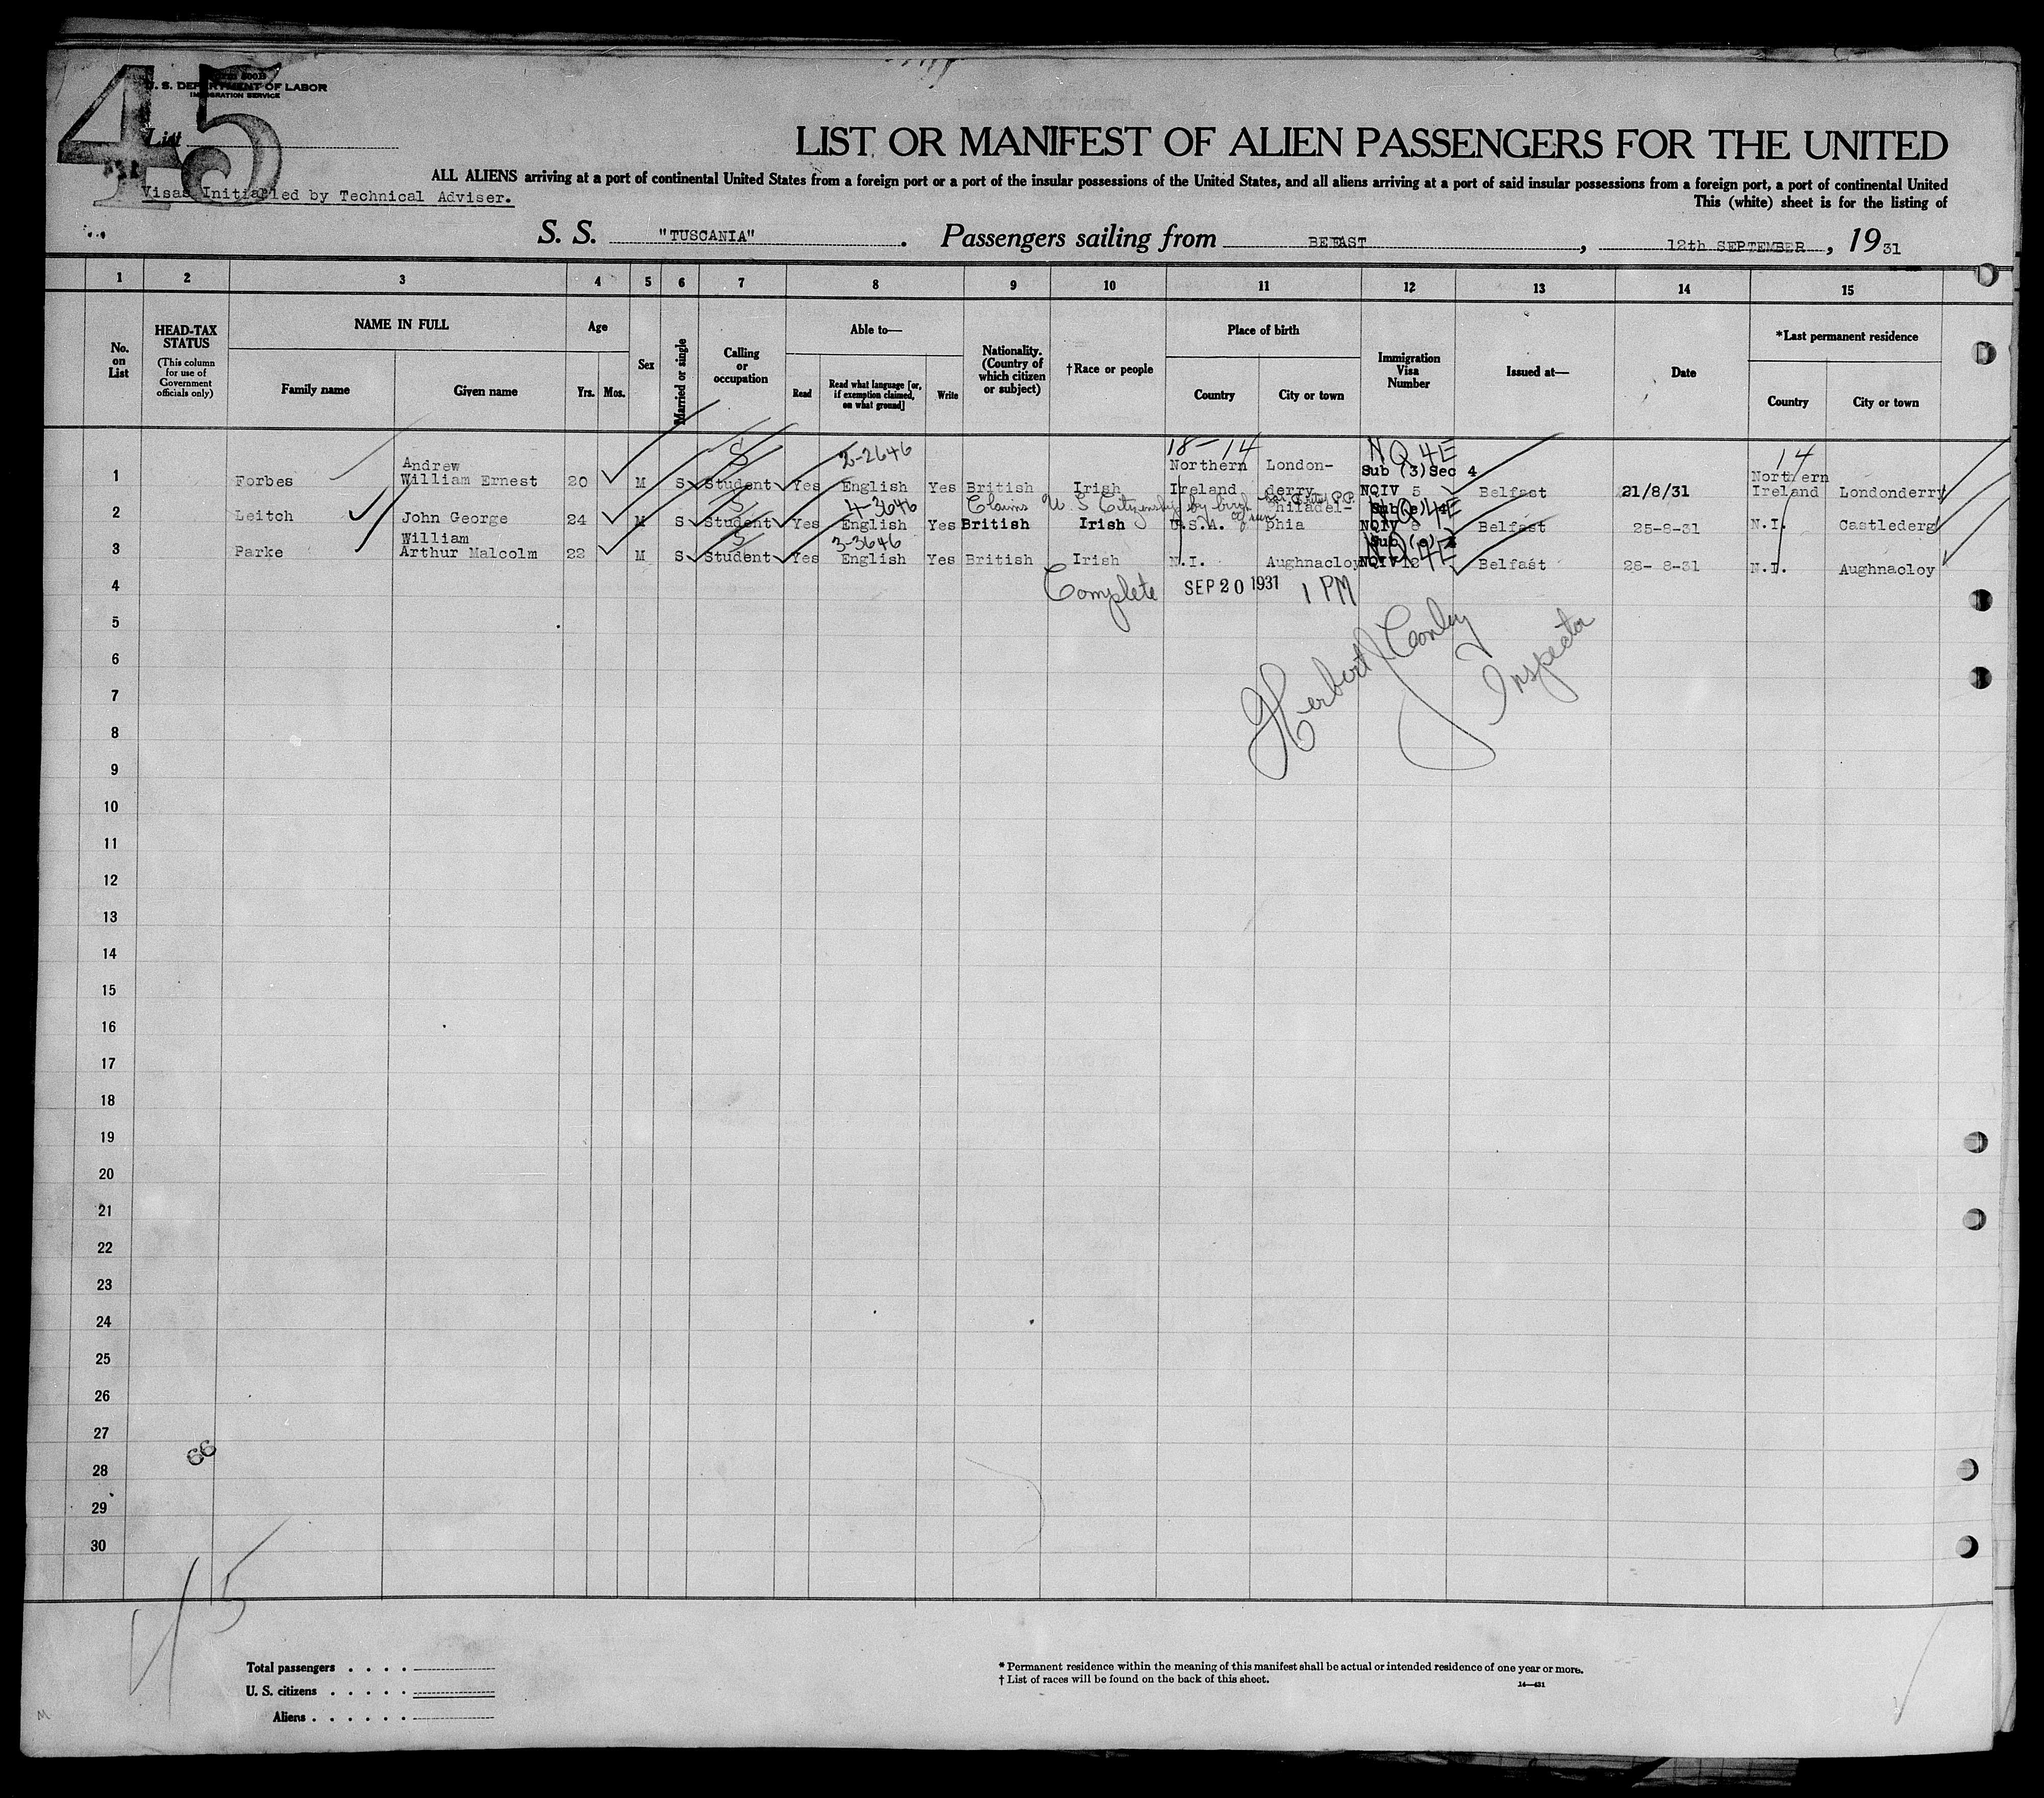 45
U. S. DEPARTMENT OF LABOR
IMMIGRATION SERVICE
List
LIST OR MANIFEST OF ALIEN PASSENGERS FOR THE UNITED
ALL ALIENS arriving at a port of continental United States from a foreign port or a port of the insular possessions of the United States, and all aliens arriving at a port of said insular possessions from a foreign port, a port of continental United
Visas Initialled by Technical Adviser.
This (white) sheet is for the listing of
S. S. "TUSCANIA". Passengers sailing from BEFAST, 12th SEPTEMBER, 1931
1 2 3 4 5 6 7 8 9 10 11 12 13 14 15
No. on List
HEAD-TAX STATUS
(This column for use of Government officials only)
NAME IN FULL
Family name
Given name
Age
Yrs. Mos.
Sex
Married or single
Calling or occupation
Able to—
Read
Read what language [or, if exemption claimed, on what ground]
Write
Nationality. (Country of which citizen or subject)
†Race or people
Place of birth
Country
City or town
Immigration Visa Number
Issued at—
Date
*Last permanent residence
Country
City or town
S 2-2646 18-14 NQ 4E 14
1 Forbes Andrew William Ernest 20 M S Student Yes English Yes British Irish Northern Ireland London-derry Sub (3) Sec 4 NQIV 5 Belfast 21/8/31 Northern Ireland Londonderry
S 4-3646 Claims U S Citizenship by birth NQ 4E
2 Leitch John George 24 M S Student Yes English Yes British Irish U.S.A. Philadel-phia Sub (e) 4 NQIV 8 Belfast 25-8-31 N.I. Castlederg
S 3-3646 NQ 4E
3 Parke William Arthur Malcolm 22 M S Student Yes English Yes British Irish N.I. Aughnacloy Sub (e) 4 NQIV 12 Belfast 28- 8-31 N.I. Aughnacloy
4 Complete SEP 20 1931 1 PM
5
6
7
Herbert J Conley
Inspector
8
9
10
11
12
13
14
15
16
17
18
19
20
21
22
23
24
25
26
27
66
28
29
30
45
Total passengers . . . .
U. S. citizens . . . . .
Aliens . . . . . .
* Permanent residence within the meaning of this manifest shall be actual or intended residence of one year or more.
† List of races will be found on the back of this sheet.
14—431